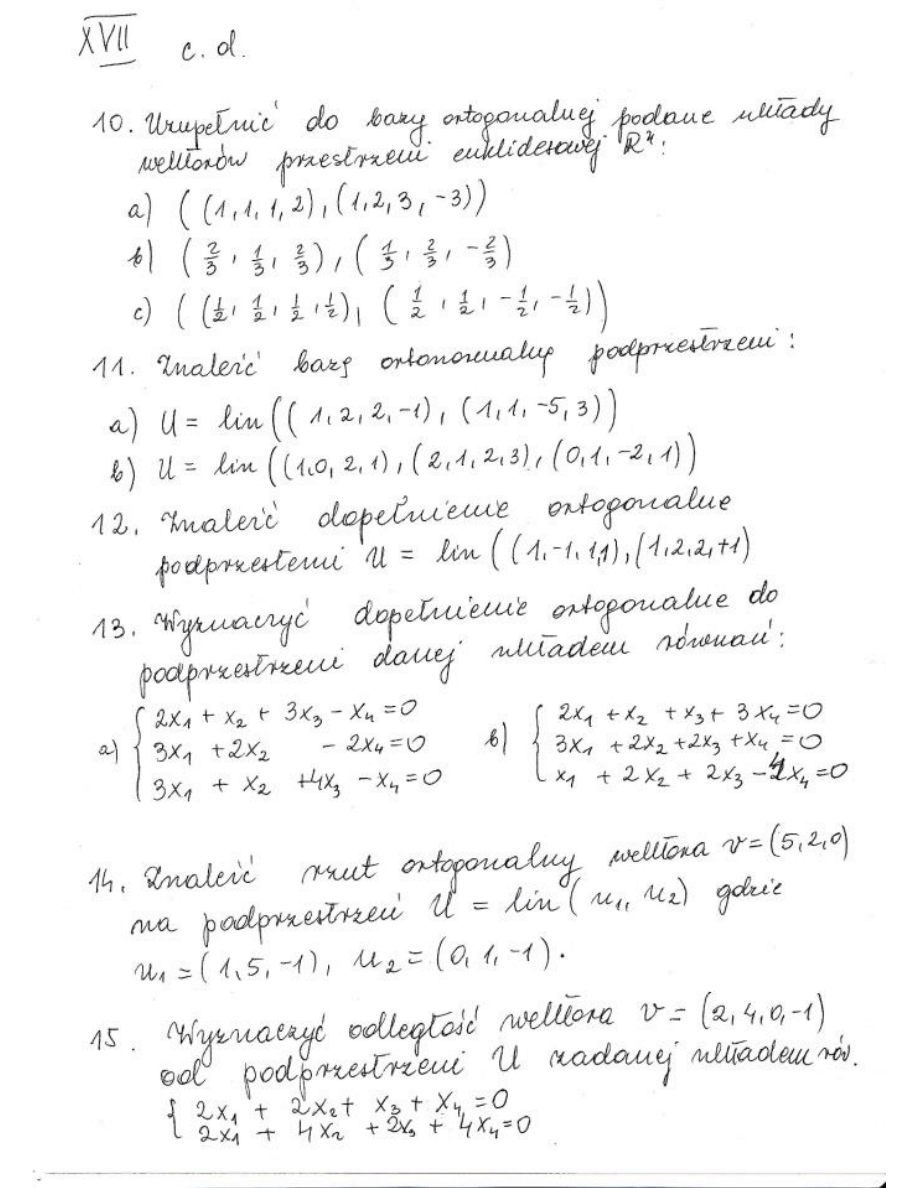 XVII c.d.
10. Uzupełnić do bazy ortogonalnej podane układy
wektorów przestrzeni euklidesowej R⁴:
a) ((1,1,1,2),(1,2,3,-3))
b) (2/3, 1/3, 2/3), (1/3, 2/3, -2/3)
c) ((1/2, 1/2, 1/2, 1/2), (1/2, 1/2, -1/2, -1/2))
11. Znaleźć bazę ortonormalną podprzestrzeni:
a) U = lin((1,2,2,-1), (1,1,-5,3))
b) U = lin((1,0,2,1),(2,1,2,3),(0,1,-2,1))
12. Znaleźć dopełnienie ortogonalne
podprzesteni U = lin((1,-1,1,1),(1,2,2,+1)
13. Wyznaczyć dopełnienie ortogonalne do
podprzestrzeni danej układem równań:
a) { 2x₁ + x₂ + 3x₃ - x₄ = 0 b) { 2x₁ + x₂ + x₃ + 3x₄ = 0
3x₁ + 2x₂ - 2x₄ = 0 3x₁ + 2x₂ + 2x₃ + x₄ = 0
3x₁ + x₂ + 4x₃ - x₄ = 0 x₁ + 2x₂ + 2x₃ - 4x₄ = 0
14. Znaleźć rzut ortogonalny wektora v = (5,2,0)
na podprzestrzeń U = lin(u₁, u₂) gdzie
u₁ = (1,5,-1), u₂ = (0,1,-1).
15. Wyznaczyć odległość wektora v = (2,4,0,-1)
od podprzestrzeni U zadanej układem rów.
{ 2x₁ + 2x₂ + x₃ + x₄ = 0
2x₁ + 4x₂ + 2x₃ + 4x₄ = 0